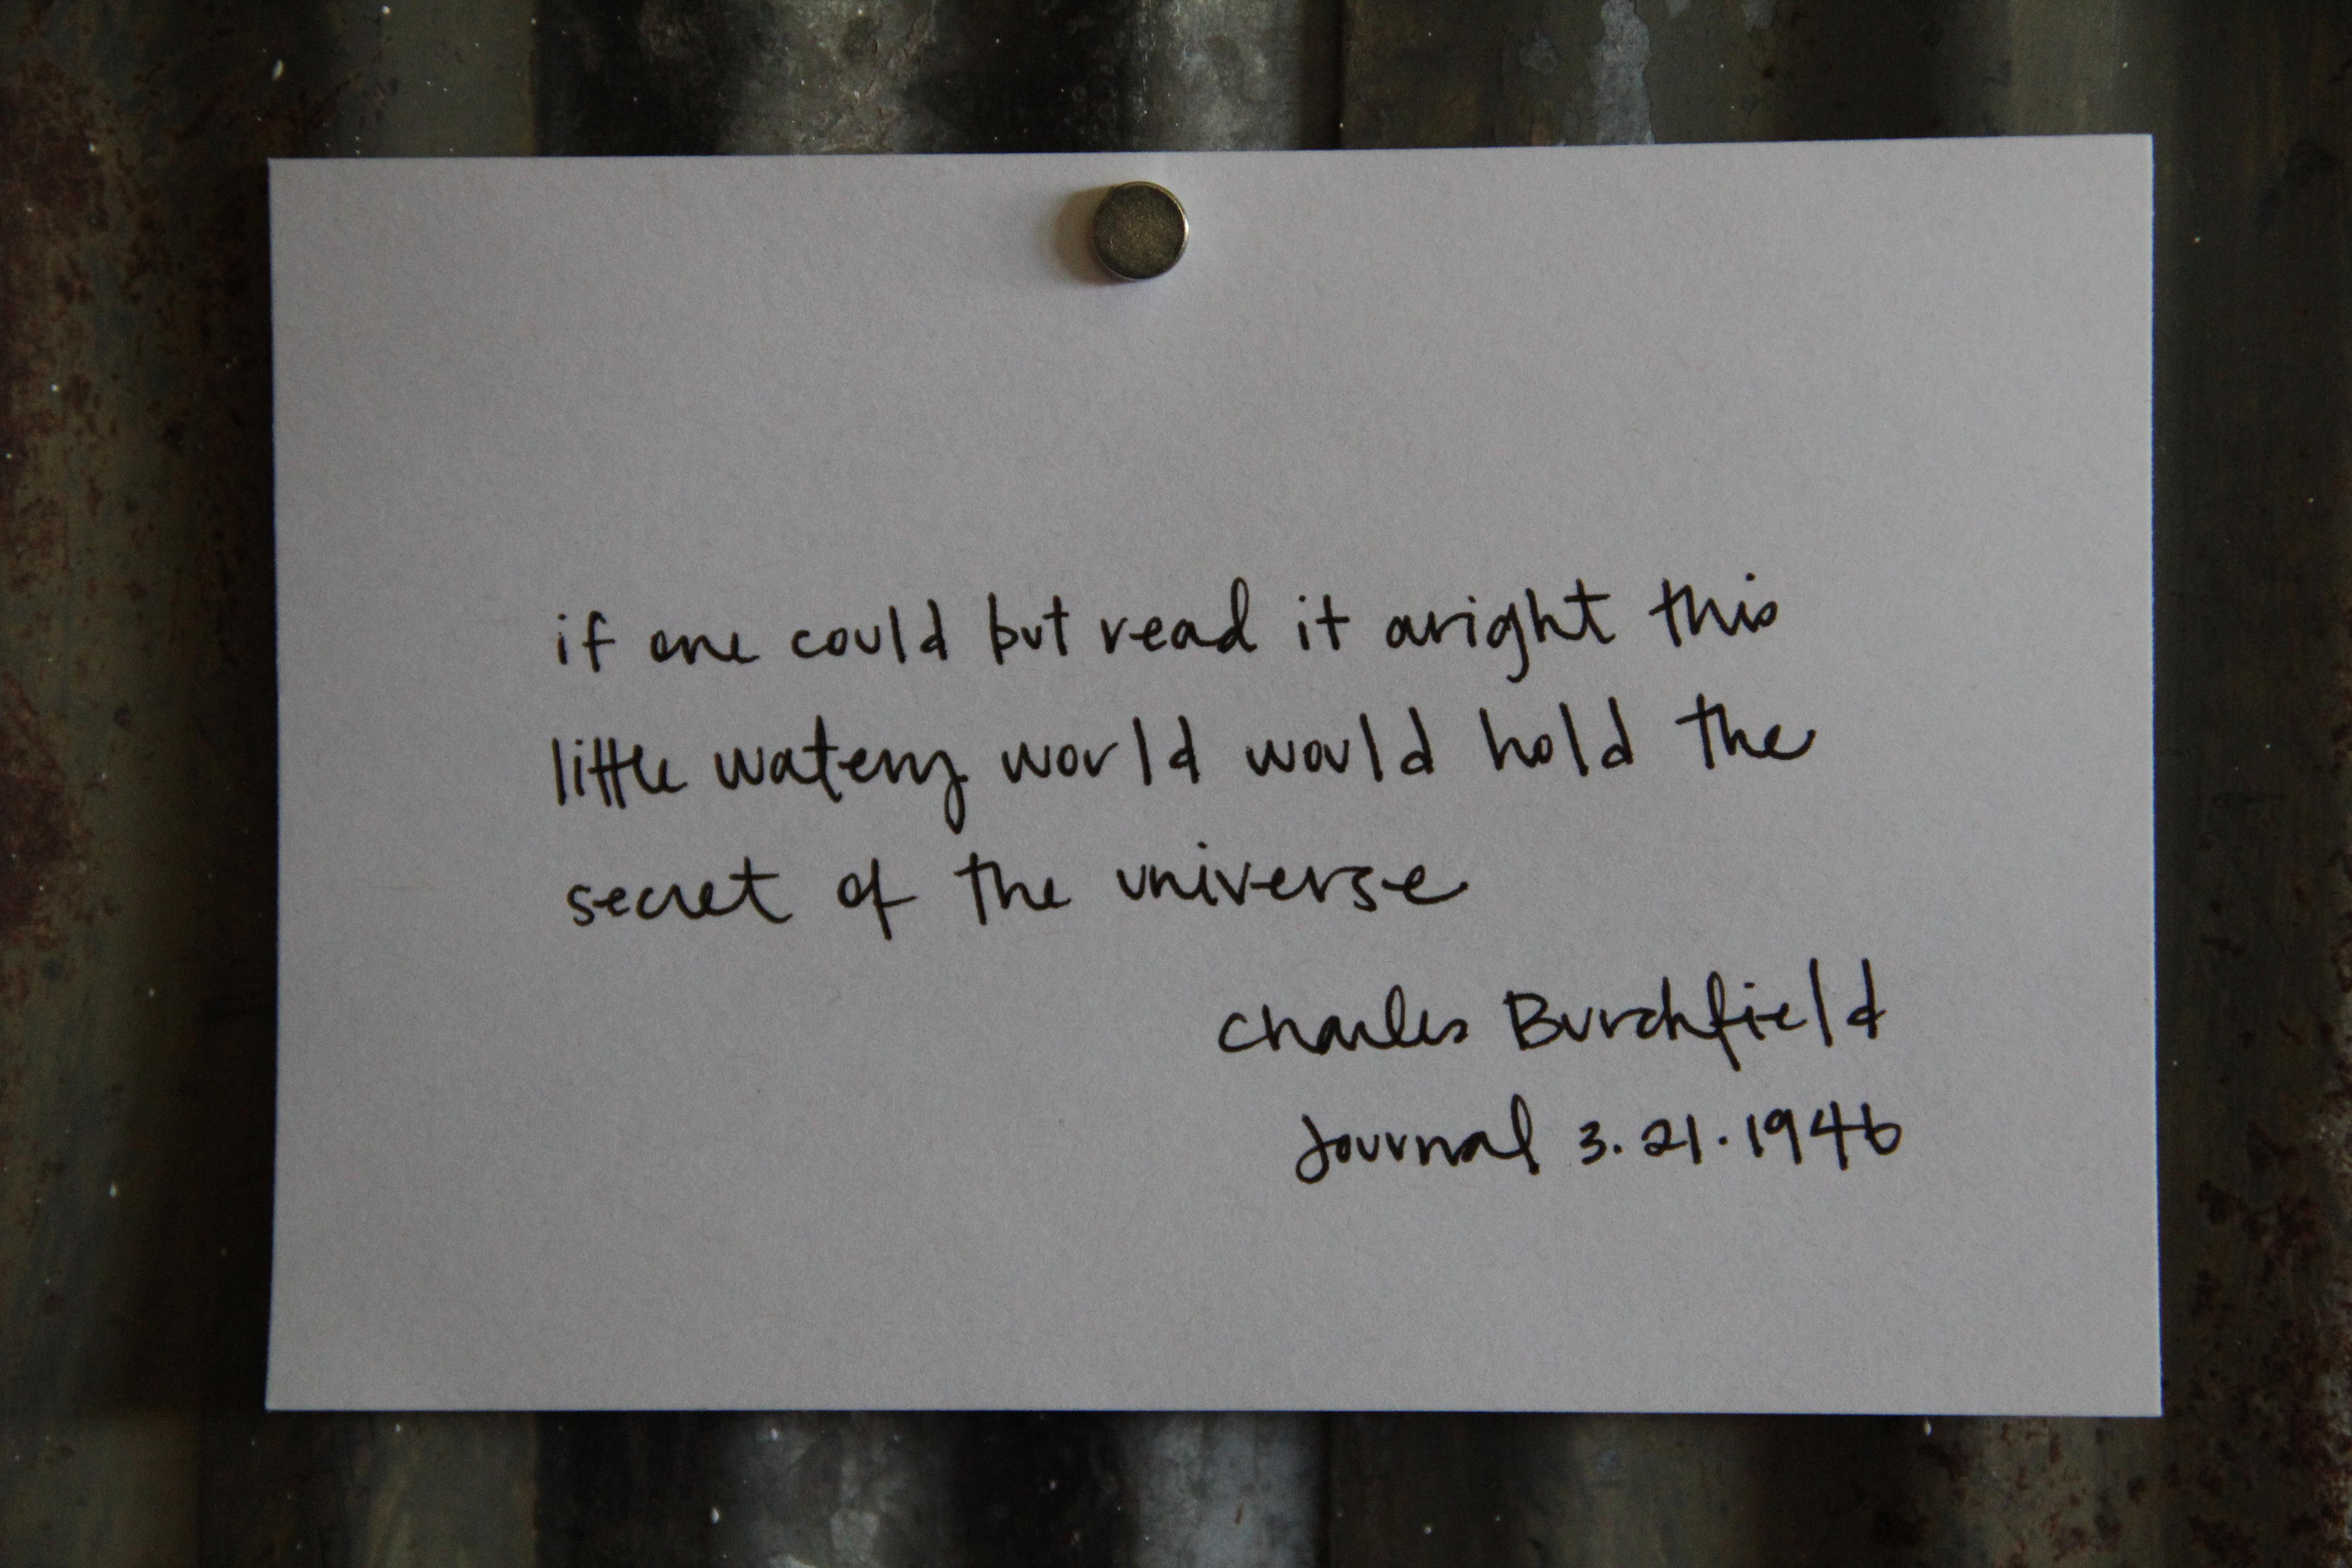 if one could but read it aright this
little watery world would hold the
secret of the universe
Charles Burchfield
Journal 3.21.1946